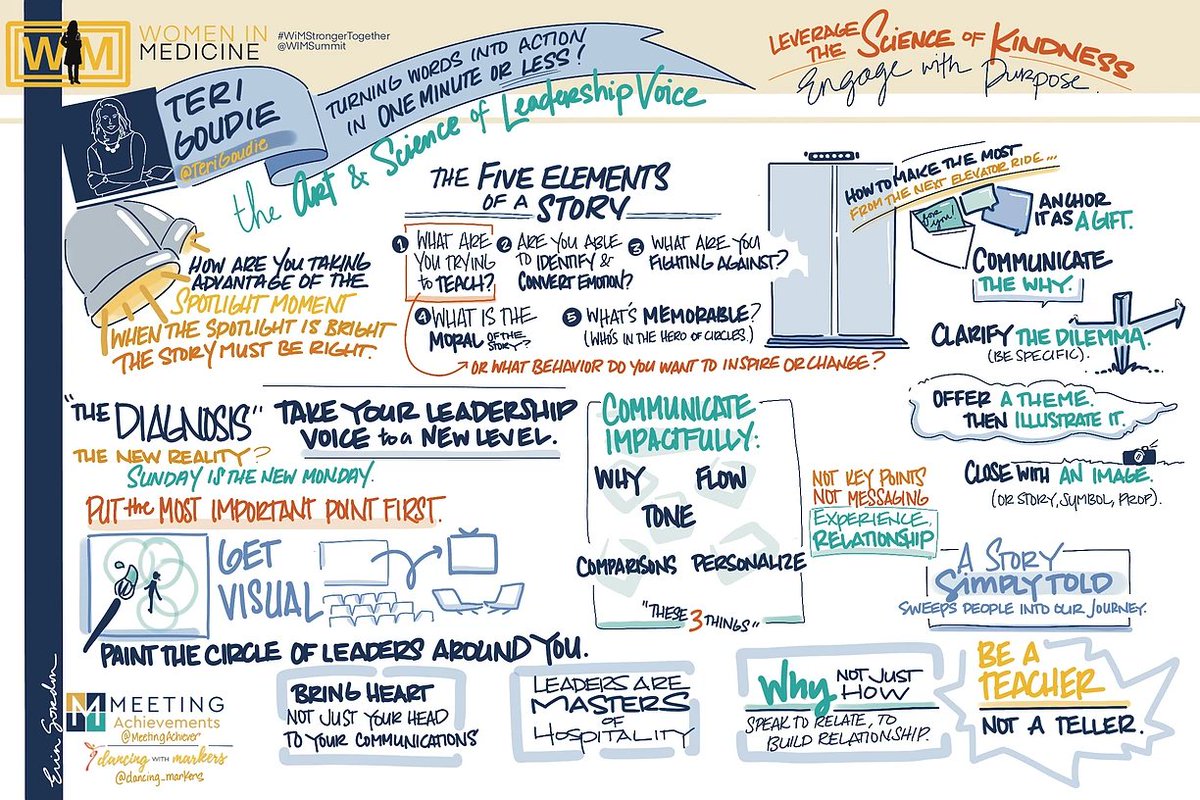 WiM
WOMEN IN
MEDICINE
#WiMStrongerTogether
@WIMSummit
LEVERAGE
THE SCIENCE OF KINDNESS
Engage with Purpose.
TERI
GOUDIE
@TeriGoudie
TURNING WORDS INTO ACTION
IN ONE MINUTE OR LESS!
the Art & Science of Leadership Voice
HOW ARE YOU TAKING
ADVANTAGE OF THE
SPOTLIGHT MOMENT
WHEN THE SPOTLIGHT IS BRIGHT
THE STORY MUST BE RIGHT.
THE FIVE ELEMENTS
OF A STORY
1 WHAT ARE
YOU TRYING
to TEACH?
2 ARE YOU ABLE
TO IDENTIFY &
CONVERT EMOTION?
3 WHAT ARE YOU
FIGHTING AGAINST?
4 WHAT IS THE
MORAL OF THE
STORY?
5 WHAT'S MEMORABLE?
(WHO'S IN THE HERO OF CIRCLES.)
OR WHAT BEHAVIOR DO YOU WANT TO INSPIRE OR CHANGE?
HOW TO MAKE THE MOST
FROM THE NEXT ELEVATOR RIDE...
for you!
ANCHOR
IT AS A GIFT.
COMMUNICATE
THE WHY.
CLARIFY THE DILEMMA.
(BE SPECIFIC).
OFFER A THEME.
THEN ILLUSTRATE IT.
CLOSE WITH AN IMAGE.
(OR STORY, SYMBOL, PROP).
"THE DIAGNOSIS"
THE NEW REALITY?
SUNDAY IS THE NEW MONDAY.
TAKE YOUR LEADERSHIP
VOICE to a NEW LEVEL.
PUT the MOST IMPORTANT POINT FIRST.
GET
VISUAL
PAINT THE CIRCLE OF LEADERS AROUND YOU.
COMMUNICATE
IMPACTFULLY:
WHY FLOW
TONE
COMPARISONS PERSONALIZE
"THESE 3 THINGS"
NOT KEY POINTS
NOT MESSAGING
EXPERIENCE,
RELATIONSHIP
A STORY
SIMPLY TOLD
SWEEPS PEOPLE INTO OUR JOURNEY.
BRING HEART
NOT JUST YOUR HEAD
TO YOUR COMMUNICATIONS
LEADERS ARE
MASTERS
OF
HOSPITALITY
Why NOT JUST
HOW
SPEAK TO RELATE, TO
BUILD RELATIONSHIP.
BE A
TEACHER
NOT A TELLER.
Erin Gordon
M MEETING
Achievements
@MeetingAchiever
dancing WITH markers
@dancing_markers